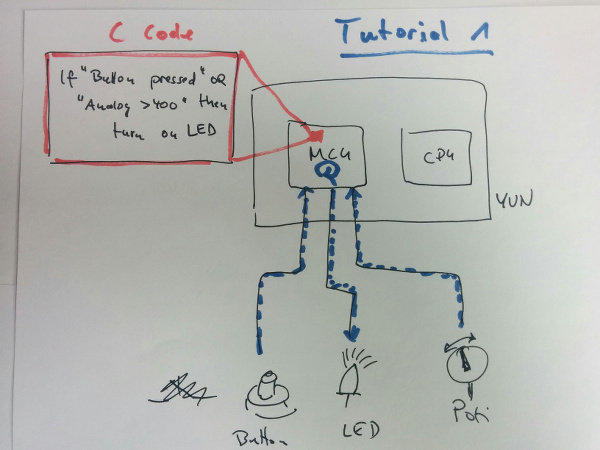 C Code
Tutorial 1
If "Button pressed" OR
"Analog >400" then
turn on LED
MCU
CPU
YUN
Button
LED
Poti